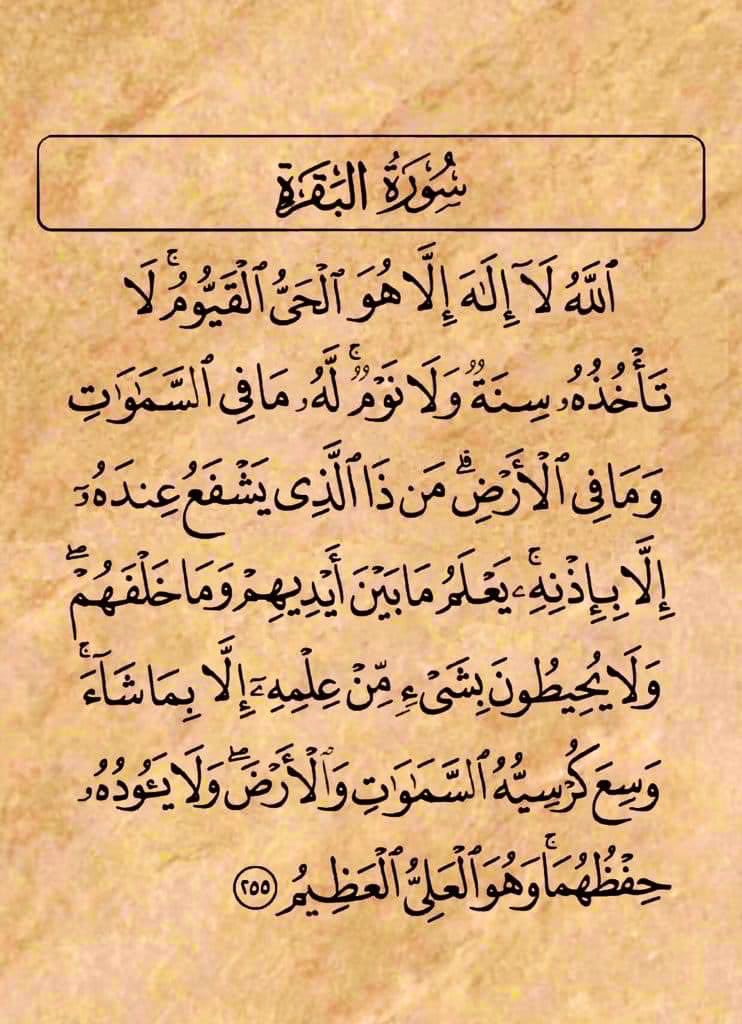 سُورَةُ البَقَرَةِ
ٱللَّهُ لَآ إِلَـٰهَ إِلَّا هُوَ ٱلْحَىُّ ٱلْقَيُّومُ ۚ لَا
تَأْخُذُهُۥ سِنَةٌ وَلَا نَوْمٌ ۚ لَّهُۥ مَا فِى ٱلسَّمَـٰوَٰتِ
وَمَا فِى ٱلْأَرْضِ ۗ مَن ذَا ٱلَّذِى يَشْفَعُ عِندَهُۥٓ
إِلَّا بِإِذْنِهِۦ ۚ يَعْلَمُ مَا بَيْنَ أَيْدِيهِمْ وَمَا خَلْفَهُمْ ۖ
وَلَا يُحِيطُونَ بِشَىْءٍ مِّنْ عِلْمِهِۦٓ إِلَّا بِمَا شَآءَ ۚ
وَسِعَ كُرْسِيُّهُ ٱلسَّمَـٰوَٰتِ وَٱلْأَرْضَ ۖ وَلَا يَـُٔودُهُۥ
حِفْظُهُمَا ۚ وَهُوَ ٱلْعَلِىُّ ٱلْعَظِيمُ ٢٥٥